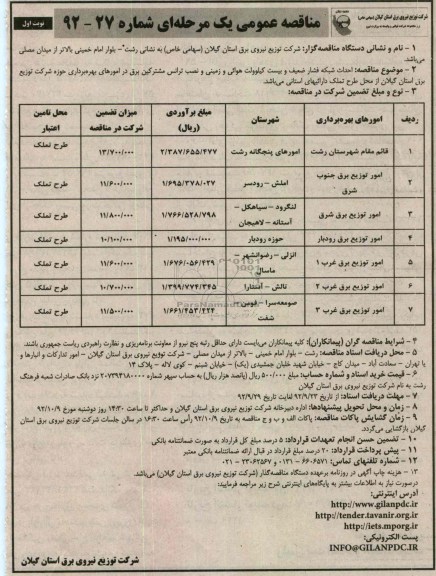 شرکت توزیع نیروی برق استان گیلان (سهامی خاص)
مناقصه عمومی یک مرحله‌ای شماره ۲۷ - ۹۲
نوبت اول
۱ - نام و نشانی دستگاه مناقصه گزار: شرکت توزیع نیروی برق استان گیلان (سهامی خاص) به نشانی رشت - بلوار امام خمینی بالاتر از میدان مصلی
می‌باشد.
۲ - موضوع مناقصه: احداث شبکه فشار ضعیف و بیست کیلوولت هوائی و زمینی و نصب ترانس مشترکین برق در امورهای بهره‌برداری حوزه شرکت توزیع
برق استان گیلان از محل طرح تملک دارائیهای استانی می‌باشد.
۳ - نوع و مبلغ تضمین شرکت در مناقصه:
ردیف امورهای بهره‌برداری شهرستان مبلغ برآوردی (ریال) میزان تضمین شرکت در مناقصه محل تامین اعتبار
۱ قائم مقام شهرستان رشت امورهای پنجگانه رشت ۲/۳۸۷/۶۵۵/۴۷۷ ۱۳/۷۰۰/۰۰۰ طرح تملک
۲ امور توزیع برق جنوب شرق املش - رودسر ۱/۶۹۵/۳۷۸/۰۲۷ ۱۱/۶۰۰/۰۰۰ طرح تملک
۳ امور توزیع برق شرق لنگرود - سیاهکل - آستانه - لاهیجان ۱/۷۶۶/۵۲۸/۷۹۸ ۱۱/۸۰۰/۰۰۰ طرح تملک
۴ امور توزیع برق رودبار حوزه رودبار ۱/۱۹۵/۰۰۰/۰۰۰ ۱۰/۱۰۰/۰۰۰ طرح تملک
۵ امور توزیع برق غرب ۱ انزلی - رضوانشهر - ماسال ۱/۶۷۶/۰۵۶/۴۲۹ ۱۱/۶۰۰/۰۰۰ طرح تملک
۶ امور توزیع برق غرب ۲ تالش - آستارا ۱/۳۹۹/۷۷۴/۳۴۵ ۱۰/۷۰۰/۰۰۰ طرح تملک
۷ امور توزیع برق غرب ۳ صومعه‌سرا - فومن - شفت ۱/۶۶۱/۴۵۳/۴۲۴ ۱۱/۵۰۰/۰۰۰ طرح تملک
۴ - شرایط مناقصه گران (پیمانکاران): کلیه پیمانکاران می‌بایست دارای حداقل رتبه پنج نیرو از معاونت برنامه‌ریزی و نظارت راهبردی ریاست جمهوری باشند.
۵ - محل دریافت اسناد مناقصه: رشت - بلوار امام خمینی - بالاتر از میدان مصلی - شرکت توزیع نیروی برق استان گیلان - امور تدارکات و انبارها و
یا تهران - سعادت آباد - میدان کاج - خیابان شهید خلبان جمشیدی (یک) - خیابان شبنم - کوی لاله - پلاک ۱۴
۶ - قیمت خرید اسناد و شماره حساب: مبلغ ۵۰۰/۰۰۰ ریال (پانصد هزار ریال) به حساب سپهر شماره نزد بانک صادرات شعبه فرهنگ
رشت به نام شرکت توزیع نیروی برق استان گیلان
۷ - مهلت دریافت اسناد: از تاریخ ۹۲/۹/۲۳ لغایت تاریخ ۹۲/۹/۲۹
۸ - زمان و محل تحویل پیشنهادها: اداره دبیرخانه شرکت توزیع نیروی برق استان گیلان و حداکثر تا ساعت ۱۴:۳۰ روز دوشنبه مورخ ۹۲/۱۰/۹
۹ - زمان گشایش پاکات مناقصه: پاکات الف و ب و ج مناقصه به تاریخ ۹۲/۱۰/۹ رأس ساعت ۱۶:۳۰ در سالن جلسات شرکت توزیع نیروی برق استان
گیلان بازگشایی می‌گردد.
۱۰ - تضمین حسن انجام تعهدات قرارداد: ۵ درصد مبلغ کل قرارداد به صورت ضمانتنامه بانکی
۱۱ - پیش پرداخت قرارداد: ۲۰ درصد مبلغ قرارداد در قبال ارائه ضمانتنامه بانکی معتبر
۱۲ - شماره تلفنهای تماس: ۶۶۰۶۵۷۱ - ۰۱۳۱ و ۲۳۰۶۲۵۶۷ - ۰۲۱
۱۳ - هزینه چاپ آگهی در روزنامه برعهده دستگاه مناقصه‌گذار (شرکت توزیع نیروی برق استان گیلان) می‌باشد.
درصورت نیاز به اطلاعات بیشتر به پایگاه‌های اینترنتی شرح زیر مراجعه فرمایید:
آدرس اینترنتی:
http://www.gilanpdc.ir
http://tender.tavanir.org.ir
http://iets.mporg.ir
پست الکترونیکی:
INFO@GILANPDC.IR
شرکت توزیع نیروی برق استان گیلان